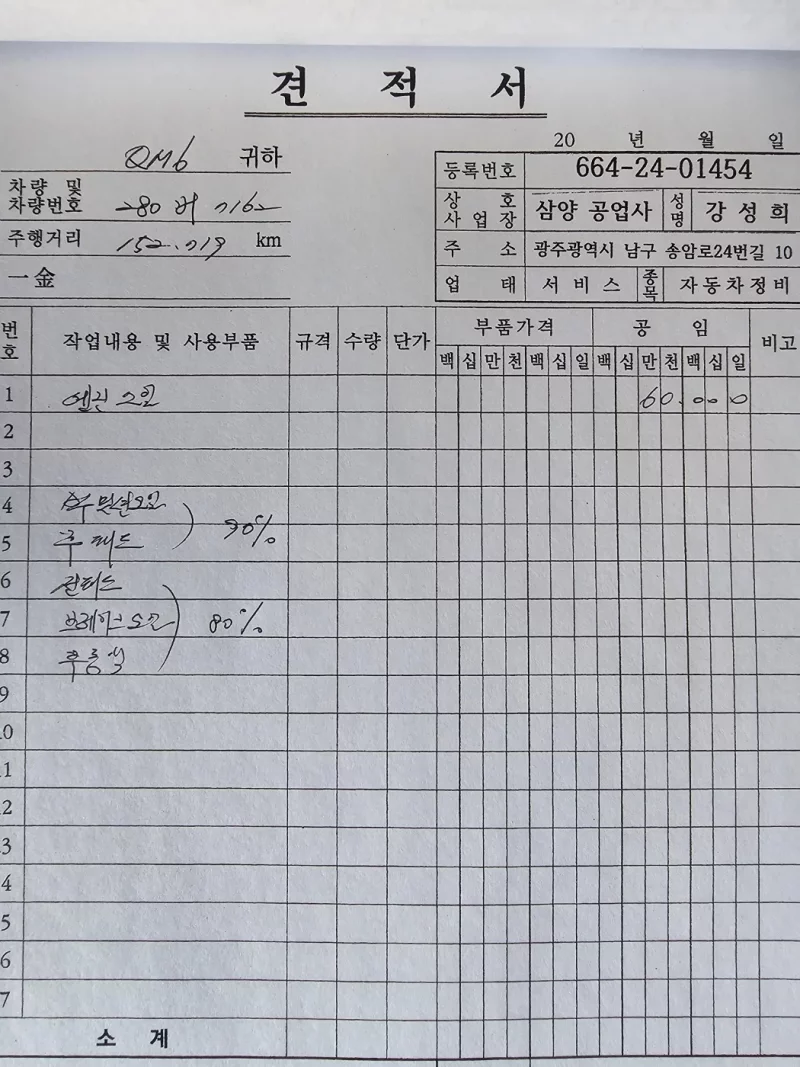 견 적 서
QM6 귀하
차량 및
차량번호 280 버 7162
주행거리 152.719 km
一金
20 년 월 일
등록번호 664-24-01454
상 호
사 업 장 삼양 공업사 성명 강 성 희
주 소 광주광역시 남구 송암로24번길 10
업 태 서 비 스 종목 자동차정비
번호 작업내용 및 사용부품 규격 수량 단가 부품가격 공 임 비고
백 십 만 천 백 십 일 백 십 만 천 백 십 일
1 엔진 오일 60.000
2
3
4 밋션오일
5 후 패드 90%
6
7 브레이크 오일 80%
8
9
10
11
12
13
14
15
16
17
소 계